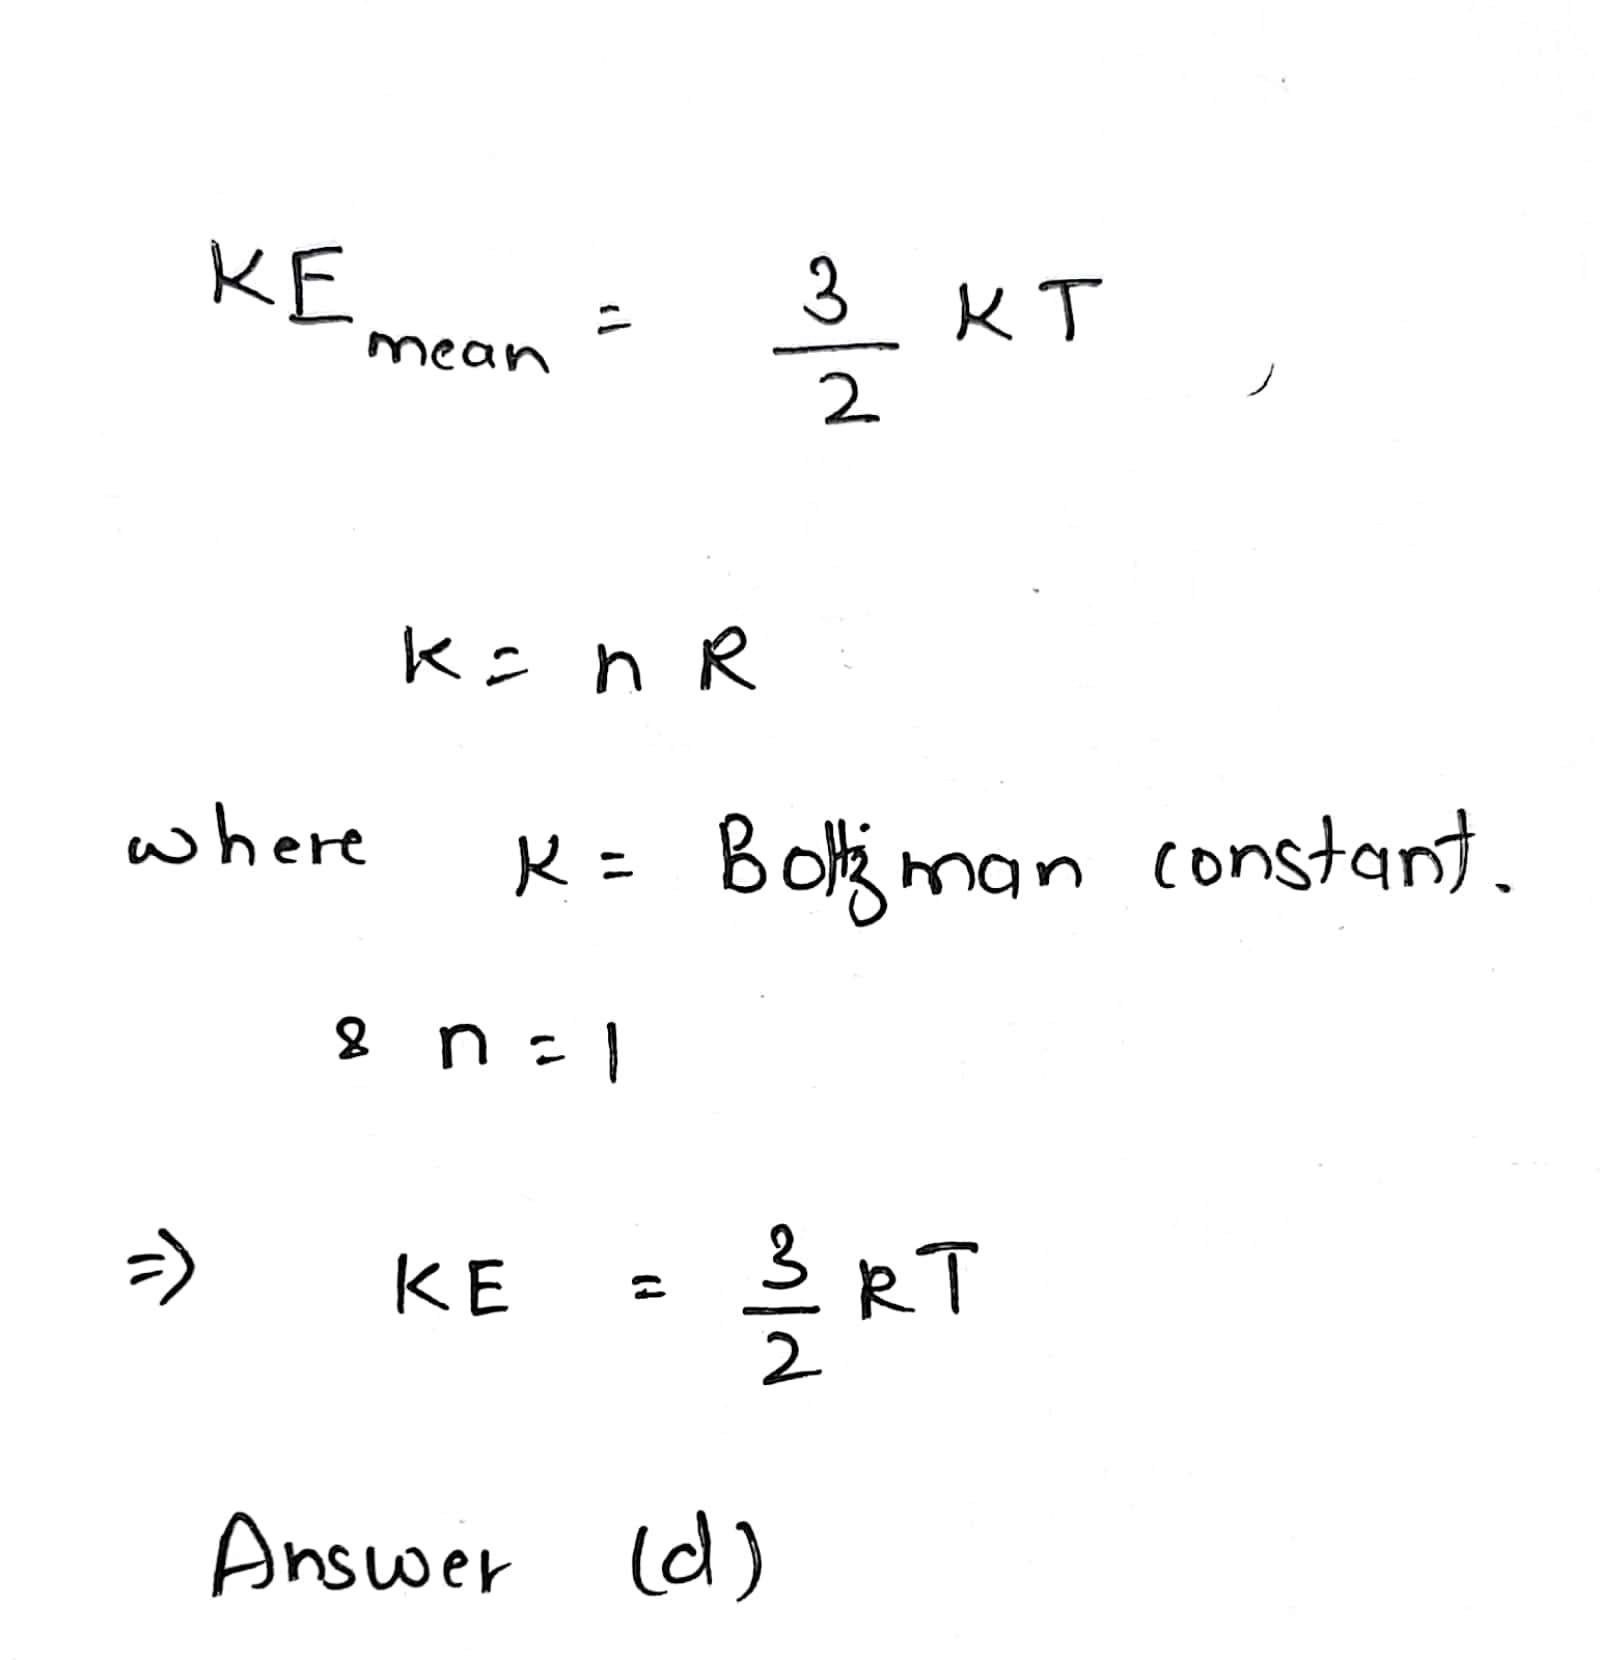 KE mean = 3/2 KT,
K = n R
where K = Boltzman constant.
& n = 1
=> KE = 3/2 RT
Answer (d)